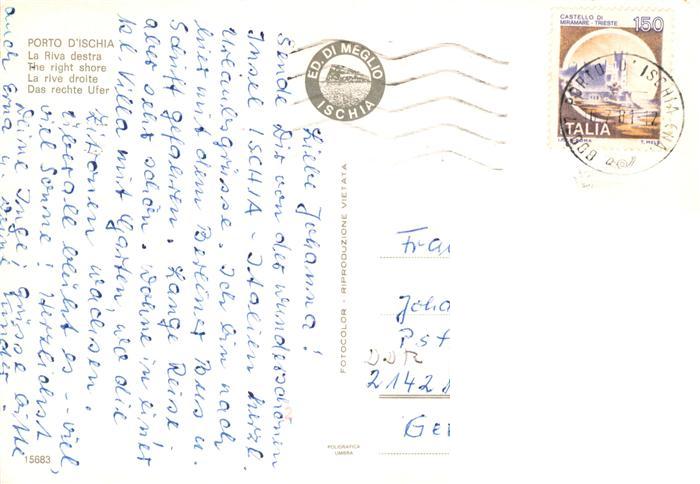 PORTO D'ISCHIA
La Riva destra
The right shore
La rive droite
Das rechte Ufer
ED. DI MEGLIO
ISCHIA
CASTELLO DI
MIRAMARE - TRIESTE
150
ITALIA
T. MELE
PORTO D'ISCHIA
Liebe Johanna!
Sende Dir von der wunderschönen
Insel ISCHIA - Italien herzl.
Urlaubsgrüsse. Ich bin nach
hier mit dem Berliner Bus u.
Schiff gefahren. Lange Reise
aber sehr schön. Wohne in einer
kl. Villa mit Garten, wo die
Zitronen wachsen.
Überall blüht es -- viel,
viel Sonne! Herzlichst
Deine Inge! Grüsse bitte
auch Erna u. Deine Kinder.
FOTOCOLOR - RIPRODUZIONE VIETATA
Frau
Joha
Pst
DDR
2142
Ge
POLIGRAFICA
UMBRA
15683